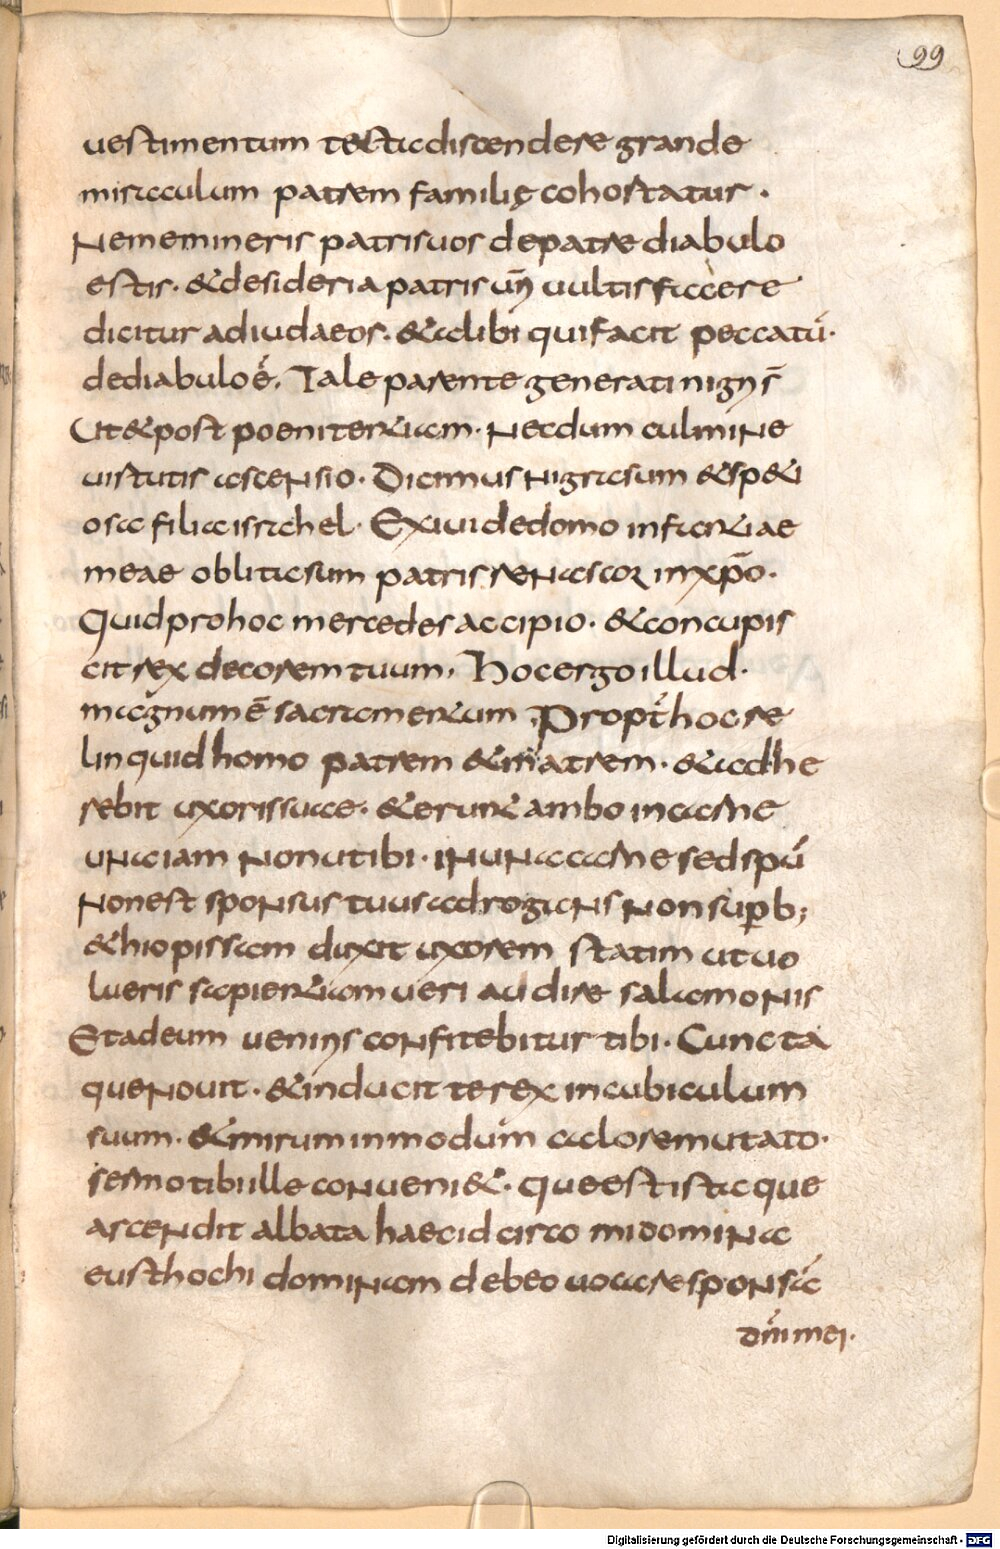 99
uestimentum tecta discendere grande
miraculum patrem familię cohortatur.
Ne memineris patris uos de patre diabulo
estis. & desideria patris ur̄i uultis facere
dicitur ad iudaeos. & alibi qui facit peccatū.
de diabulo ē. Tale parente generati nigri s̄
Ut & post poenitentiam. necdum culmine
uirtutis ascensio. Dicimus nigra sum & speti
osa filia israhel. Exiui de domo infantiae
meae oblita sum patris renascor in xp̄o.
Quid pro hoc mercedes accipio. & concupis
cit rex decorem tuum. Hoc ergo illud.
magnum ē sacramentum Propt̄ hoc re
linquid homo patrem & matrem. & adhe
rebit uxoris suae. & erunt ambo in carne
una iam non ut ibi. in una carne sed spū
Non est sponsus tuus adrogans non superb;
&hiopissam duxit uxorem statim ut uo
lueris sapientiam ueri audire salamonis
Et ad eum ueniens confitebitur tibi. Cuncta
que nouit. & inducit te rex in cubiculum
suum. & mirum in modum colore mutato.
sermo tibi ille conueni&. que est ista que
ascendit albata haec idcirco mi domina
eusthochi dominam debeo uocare sponsā
dn̄i mei.
Digitalisierung gefördert durch die Deutsche Forschungsgemeinschaft - DFG